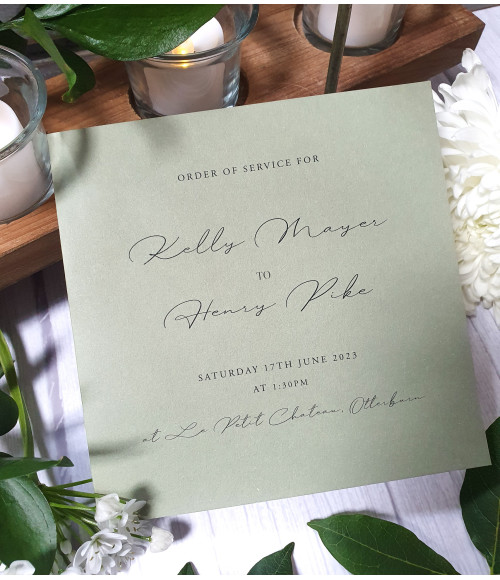 ORDER OF SERVICE FOR
Kelly Mayer
TO
Henry Pike
SATURDAY 17TH JUNE 2023
AT 1:30PM
at La Petit Chateau, Otterburn